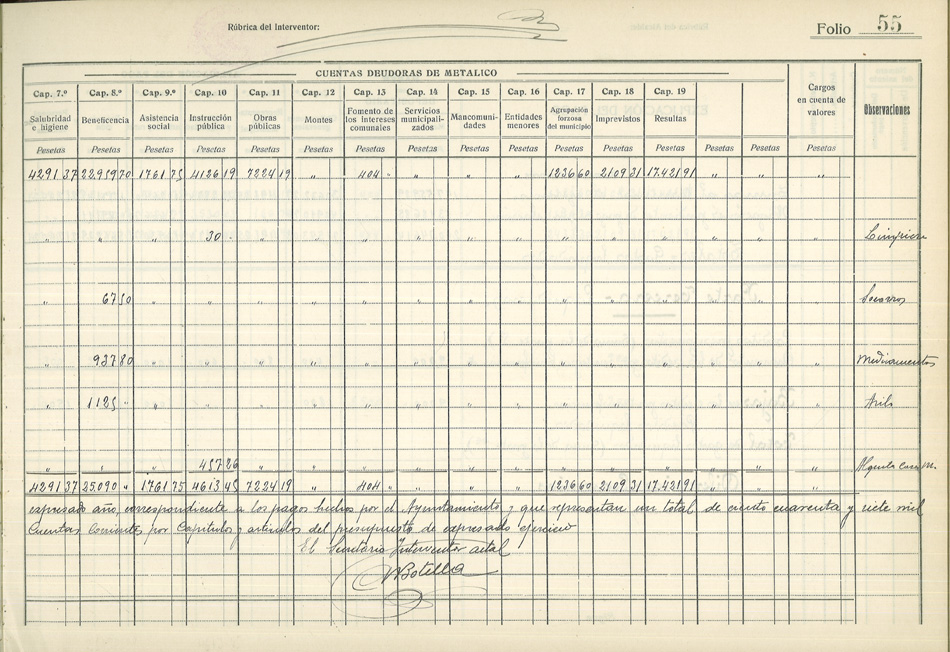 Rúbrica del Interventor:
Folio 55
CUENTAS DEUDORAS DE METALICO
Cap. 7.º Cap. 8.º Cap. 9.º Cap. 10 Cap. 11 Cap. 12 Cap. 13 Cap. 14 Cap. 15 Cap. 16 Cap. 17 Cap. 18 Cap. 19
Salubridad e higiene Beneficencia Asistencia social Instrucción pública Obras públicas Montes Fomento de los intereses comunales Servicios municipalizados Mancomunidades Entidades menores Agrupación forzosa del municipio Imprevistos Resultas Cargos en cuenta de valores Observaciones
Pesetas Pesetas Pesetas Pesetas Pesetas Pesetas Pesetas Pesetas Pesetas Pesetas Pesetas Pesetas Pesetas Pesetas Pesetas Pesetas
4291 37 22.959 70 1761 75 4126 19 7224 19 " 404 " " " " 1236 60 2109 31 17.421 91 " " "
" " " 30 - " " " " " " " " " " " "
" 67 50 " " " " " " " " " " " " " " Socorros
" 937 80 " " " " " " " " " " " " " " Medicamentos
" 1125 " " " " " " " " " " " " " " " Asilo
" " " 457 26 " " " " " " " " " " " "
4291 37 25.090 " 1761 75 4613 45 7224 19 404 " 1236 60 2109 31 17.421 91
expresado año, correspondiente a los pagos hechos por el Ayuntamiento y que representan un total de ciento cuarenta y siete mil
Cuentas Corrientes por Capitulos y articulos del presupuesto de expresado ejercicio
El Secretario Interventor actal
Botella